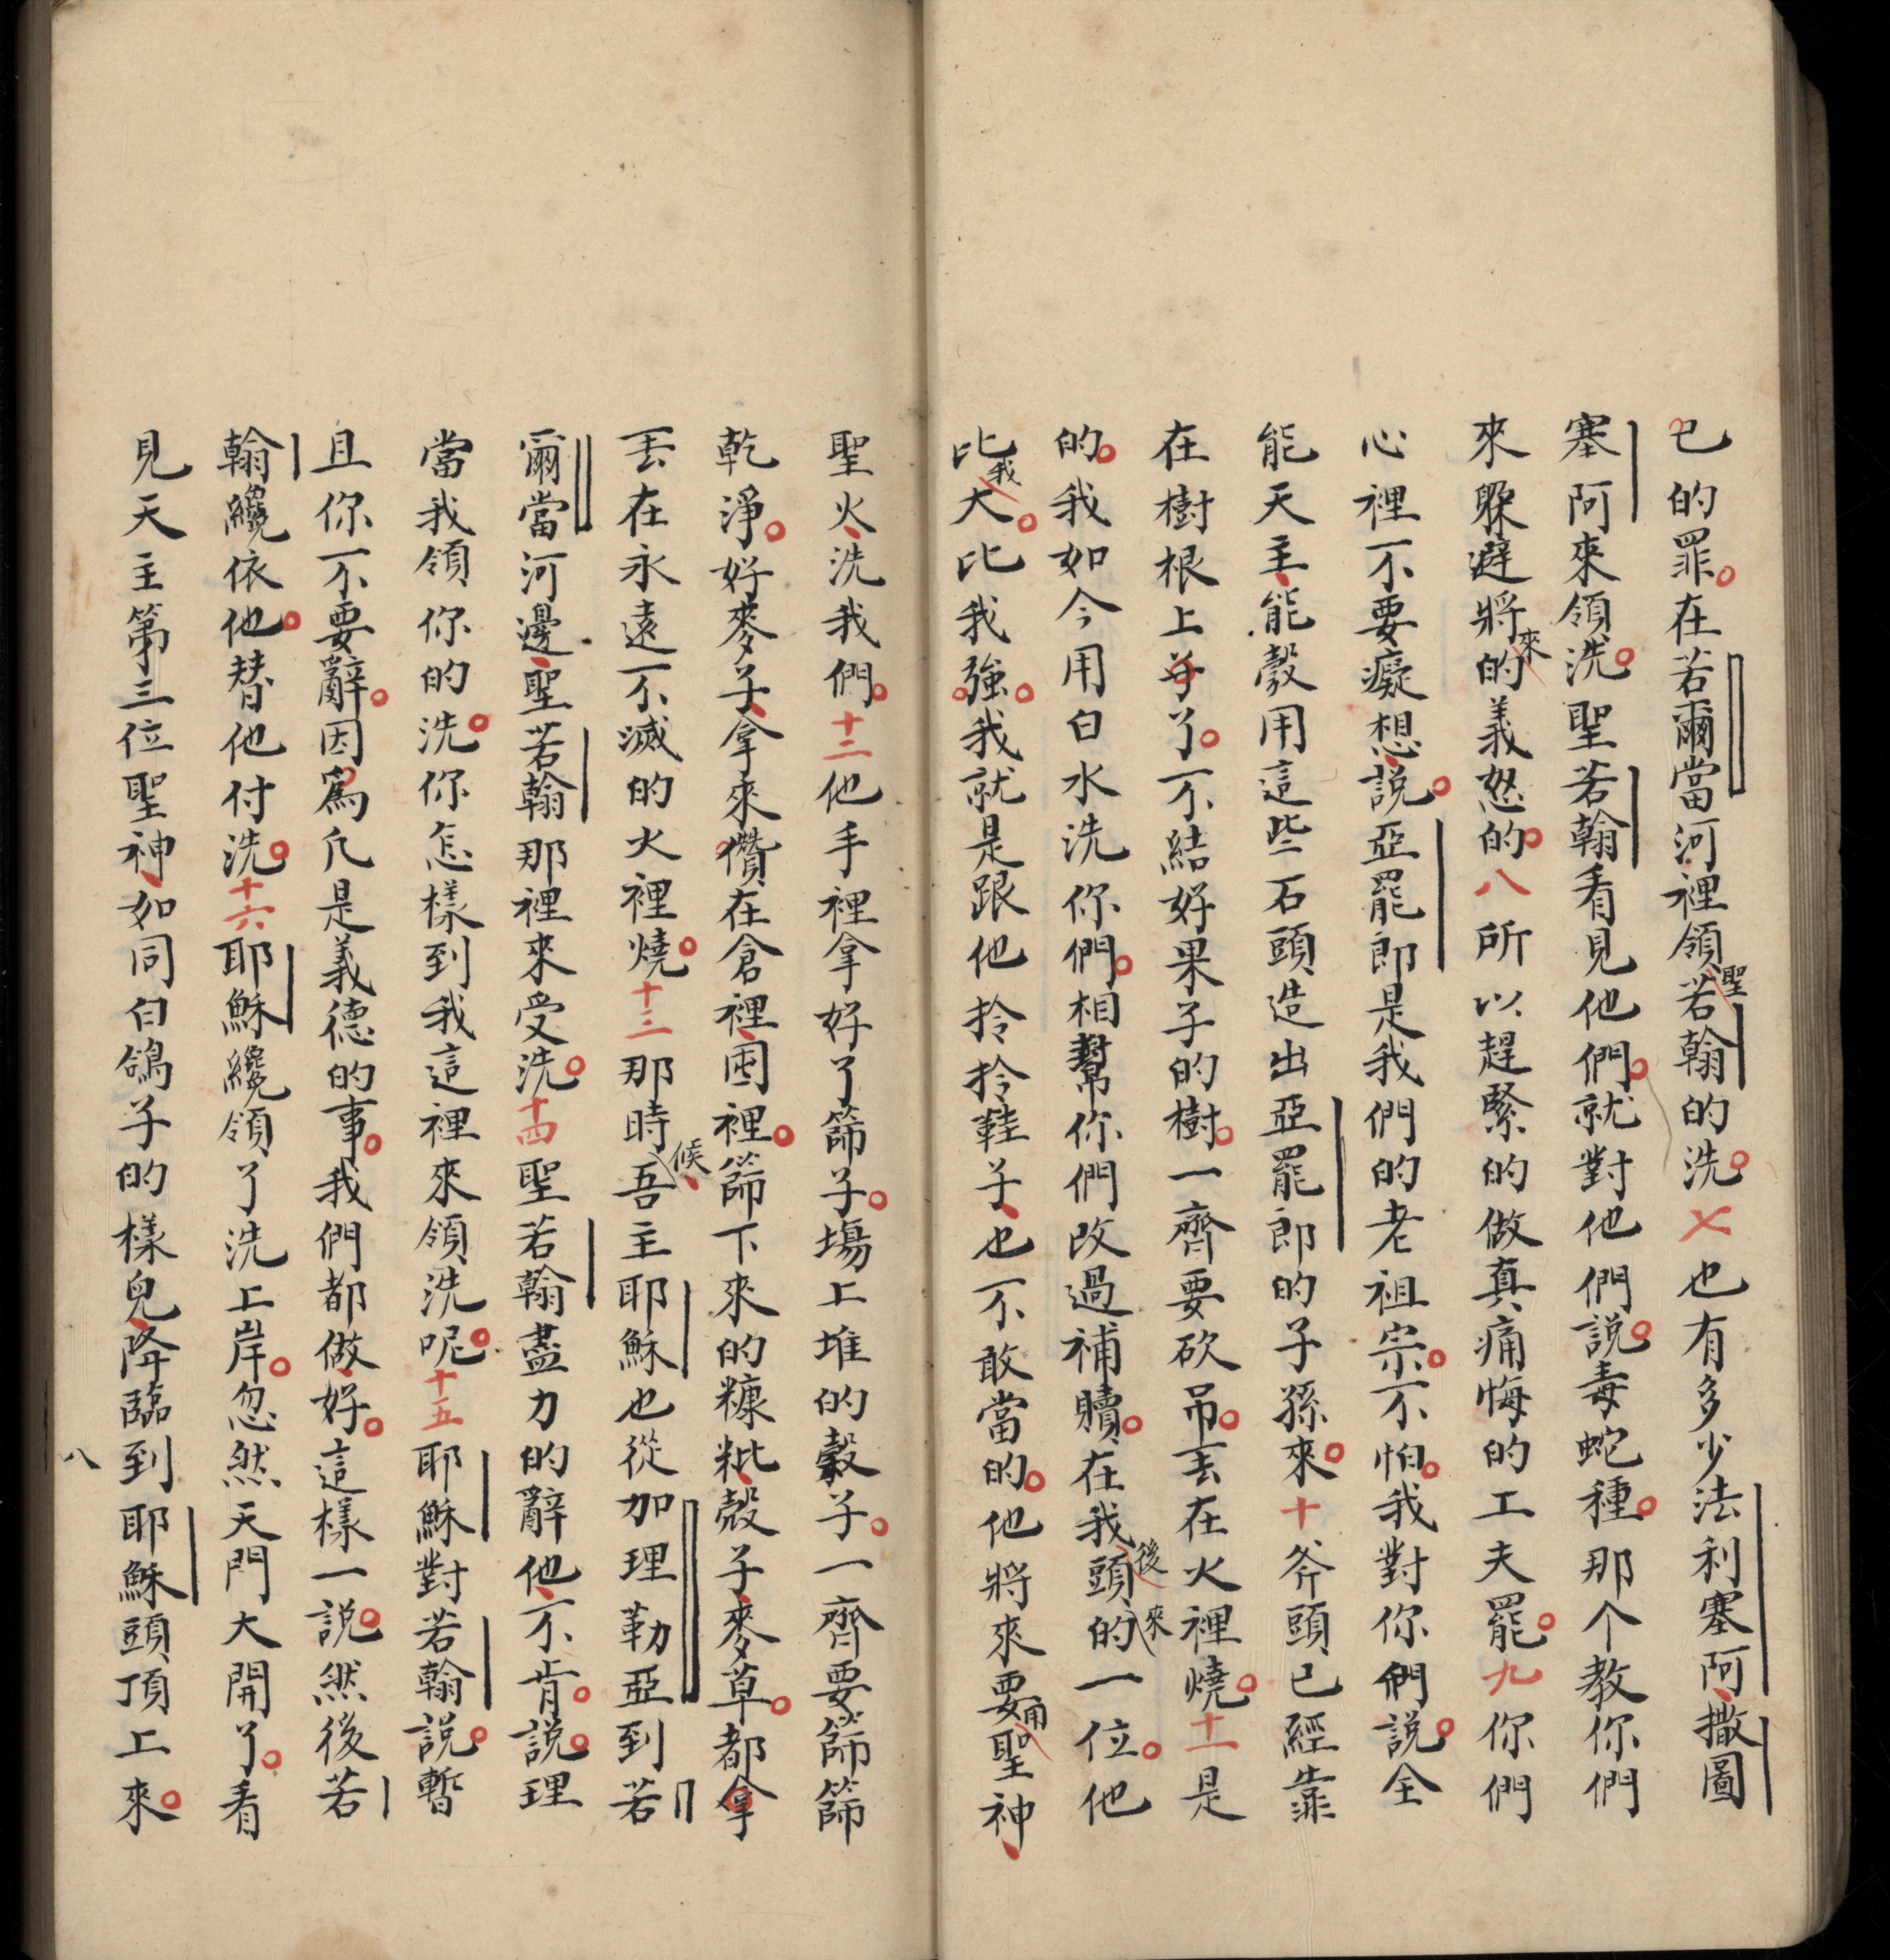 己的罪。在若爾當河裡領聖若翰的洗。七也有多少法利塞阿、撒圖
塞阿來領洗。聖若翰看見他們。就對他們說。毒蛇種。那个教你們
來躲避將來的義怒的。八所以趕緊的做真痛悔的工夫罷。九你們
心裡不要癡想、說。亞罷郎是我們的老祖宗。不怕。我對你們說。全
能天主、能彀用這些石頭造出亞罷郎的子孫來。十斧頭已經靠
在樹根上了。不結好果子的樹。一齊要砍吊。丟在火裡燒。十一是
的。我如今用白水洗你們。相幫你們改過補贖。在我後頭來的一位。他
比我大。比我強。我就是跟他拎拎鞋子、也不敢當的。他將來要用聖神、
聖火、洗我們。十二他手裡拿好了篩子。塲上堆的穀子。一齊要篩篩
乾淨。好麥子、拿來儹在倉裡、囤裡。篩下來的糠粃、殼子、麥草。都拿
丟在永遠不滅的火裡燒。十三那時候、吾主耶穌也從加理勒亞到若
爾當河邊、聖若翰那裡來受洗。十四聖若翰盡力的辭他、不肯。說。理
當我領你的洗。你怎樣到我這裡來領洗呢。十五耶穌對若翰說。暫
且你不要辭。因爲凢是義德的事。我們都做、好。這樣一說。然後若
翰纔依他。替他付洗。十六耶穌纔領了洗上岸。忽然天門大開了。看
見天主第三位聖神、如同白鴿子的樣兒、降臨到耶穌頭頂上來。
八